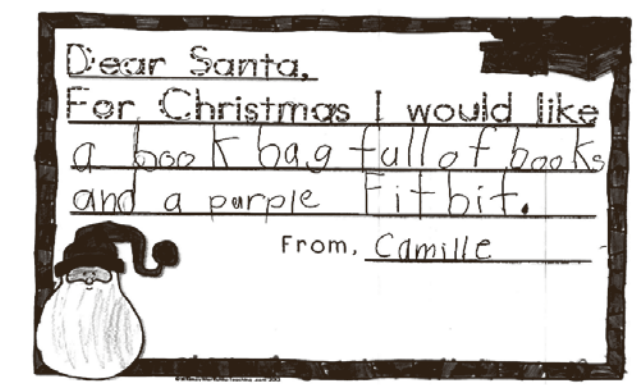 Dear Santa,
For Christmas I would like
a book bag full of books
and a purple Fitbit.
From, Camille